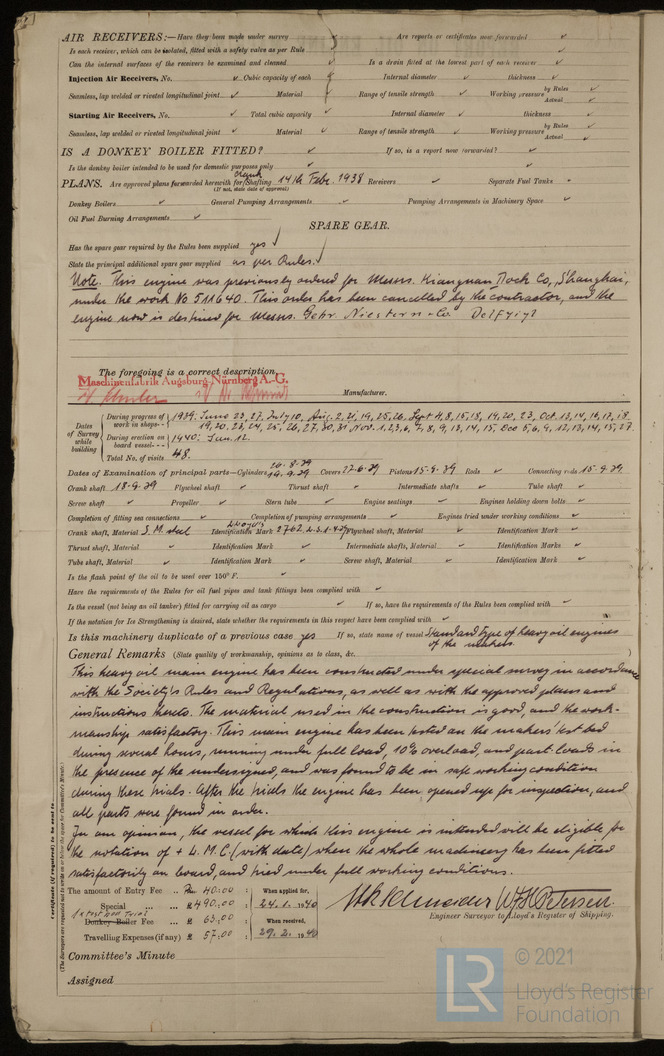 AIR RECEIVERS:—Have they been made under survey ✓ Are reports or certificates now forwarded ✓
Is each receiver, which can be isolated, fitted with a safety valve as per Rule ✓
Can the internal surfaces of the receivers be examined and cleaned ✓ Is a drain fitted at the lowest part of each receiver ✓
Injection Air Receivers, No. ✓ Cubic capacity of each Internal diameter ✓ thickness ✓
Seamless, lap welded or riveted longitudinal joint ✓ Material ✓ Range of tensile strength ✓ Working pressure by Rules ✓ Actual ✓
Starting Air Receivers, No. ✓ Total cubic capacity ✓ Internal diameter ✓ thickness ✓
Seamless, lap welded or riveted longitudinal joint ✓ Material ✓ Range of tensile strength ✓ Working pressure by Rules ✓ Actual ✓
IS A DONKEY BOILER FITTED? ✓ If so, is a report now forwarded? ✓
Is the donkey boiler intended to be used for domestic purposes only ✓
PLANS. Are approved plans forwarded herewith for crank Shafting 14th Febr. 1938 Receivers ✓ Separate Fuel Tanks ✓
(If not, state date of approval)
Donkey Boilers ✓ General Pumping Arrangements ✓ Pumping Arrangements in Machinery Space ✓
Oil Fuel Burning Arrangements ✓
SPARE GEAR.
Has the spare gear required by the Rules been supplied yes ✓
State the principal additional spare gear supplied as per Rules. ✓
Note. This engine was previously ordered for Messrs. Kiangnan Dock Co, Shanghai,
under the work No 511640. This order has been cancelled by the contractor, and the
engine now is destined for Messrs. Gebr. Niestern & Co. Delfzijl
The foregoing is a correct description,
Maschinenfabrik Augsburg-Nürnberg A.-G.
Manufacturer.
Dates of Survey while building
During progress of work in shops-- 1939: June 23, 27. July 10, Aug. 2, 21, 19, 25, 26. Sept 4, 8, 15, 18, 19, 20, 23, Oct. 13, 14, 16, 17, 18
19, 20, 23, 24, 25, 26, 27, 30, 31 Nov. 1, 2, 3, 6, 7, 8, 9, 13, 14, 15, Dec 5, 6, 9, 12, 13, 14, 15, 27.
During erection on board vessel--- 1940: Jan. 12.
Total No. of visits 48.
Dates of Examination of principal parts—Cylinders 26-8-39 19-9-39 Covers 27-6-39 Pistons 15-9-39 Rods ✓ Connecting rods 15-9-39
Crank shaft 18-9-39 Flywheel shaft ✓ Thrust shaft ✓ Intermediate shafts ✓ Tube shaft ✓
Screw shaft ✓ Propeller ✓ Stern tube ✓ Engine seatings ✓ Engines holding down bolts ✓
Completion of fitting sea connections ✓ Completion of pumping arrangements ✓ Engines tried under working conditions ✓
Crank shaft, Material S.M. steel Identification Mark Lloyd's 2762. Flywheel shaft, Material ✓ Identification Mark ✓
Thrust shaft, Material ✓ Identification Mark ✓ Intermediate shafts, Material ✓ Identification Marks ✓
Tube shaft, Material ✓ Identification Mark ✓ Screw shaft, Material ✓ Identification Mark ✓
Is the flash point of the oil to be used over 150° F. ✓
Have the requirements of the Rules for oil fuel pipes and tank fittings been complied with ✓
Is the vessel (not being an oil tanker) fitted for carrying oil as cargo ✓ If so, have the requirements of the Rules been complied with ✓
If the notation for Ice Strengthening is desired, state whether the requirements in this respect have been complied with ✓
Is this machinery duplicate of a previous case yes If so, state name of vessel Standard type of heavy oil engines
of the makers.
General Remarks (State quality of workmanship, opinions as to class, &c.)
This heavy oil main engine has been constructed under special survey in accordance
with the Society's Rules and Regulations, as well as with the approved plans and
instructions thereto. The material used in the construction is good, and the work-
manship satisfactory. This main engine has been tested on the makers' test bed
during several hours, running under full load, 10% overload, and part loads in
the presence of the undersigned, and was found to be in safe working condition
during these trials. After the trials the engine has been opened up for inspection, and
all parts were found in order.
In our opinion, the vessel for which this engine is intended will be eligible for
the notation of + L.M.C. (with date) when the whole machinery has been fitted
satisfactorily on board, and tried under full working conditions.
The amount of Entry Fee .. Rm 40:00 : When applied for,
Special ... ... R 490:00 : 24.1.1940
Donkey Boiler Fee ... R 63:00 : When received,
Travelling Expenses (if any) R 57:00 : 29.2.1940
W. H. Petersen
Engineer Surveyor to Lloyd's Register of Shipping.
Committee's Minute
Assigned
Certificate (if required) to be sent to
(The Surveyors are requested not to write on or below the space for Committee's Minute.)
© 2021
LR
Lloyd's Register
Foundation